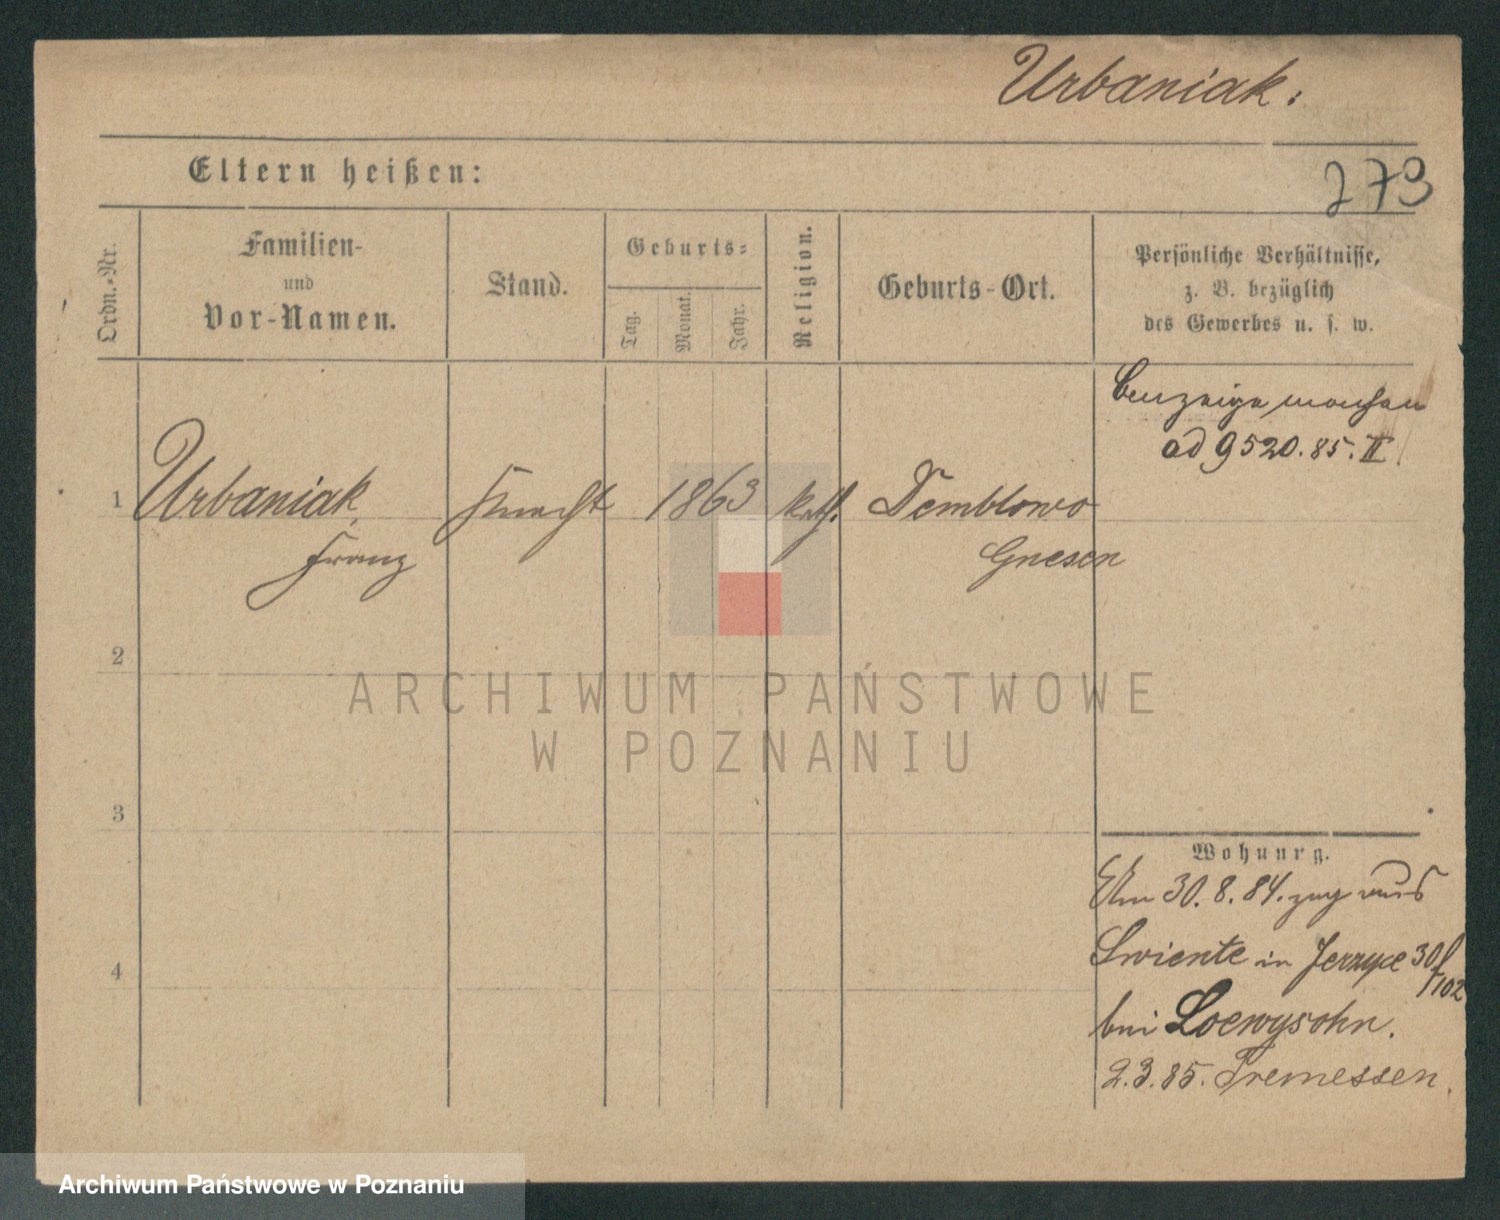 Urbaniak.
273
Eltern heißen:
Ordn.-Nr.
Familien-
und
Vor-Namen.
Stand.
Geburts-
Tag.
Monat.
Jahr.
Religion.
Geburts-Ort.
Persönliche Verhältnisse,
z. B. bezüglich
des Gewerbes u. s. w.
ad 9520.85.II
1
Urbaniak
Knecht
1863
kath.
Demblowo
Franz
Gnesen
2
3
4
Wohnung.
Am 30.8.84. zug aus
Swiente in Jerzyce 30/102
bei Loewysohn.
2.3.85. Tremessen.
ARCHIWUM PAŃSTWOWE
W POZNANIU
Archiwum Państwowe w Poznaniu